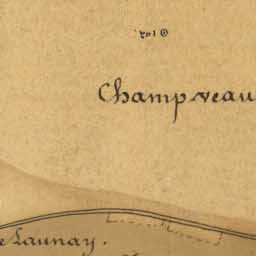 Champveau
e Launay.